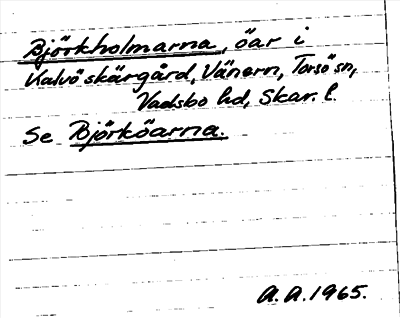 Björkholmarna, öar i
Kalvö skärgård, Vänern, Torsö sn,
Vadsbo hd, Skar. l.
Se Björköarna.
A. A. 1965.